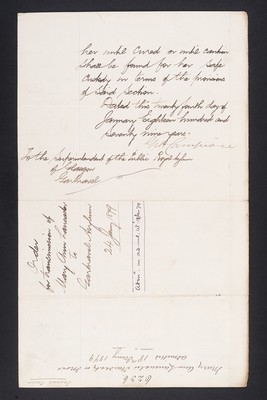 her until Cured or until caution
Shall be found for her safe
Custody in terms of the provisions
of Said Section.
Dated this twenty fourth day of
January Eighteen hundred and
Seventy nine years.
To the Superintendent of the Public Royal Asylum
of Glasgow
Gartnavel
Order
for transmission of
Mary Ann
to
Gartnavel Asylum
24 Jany 1879
6236
Mary Ann
admitted
1879